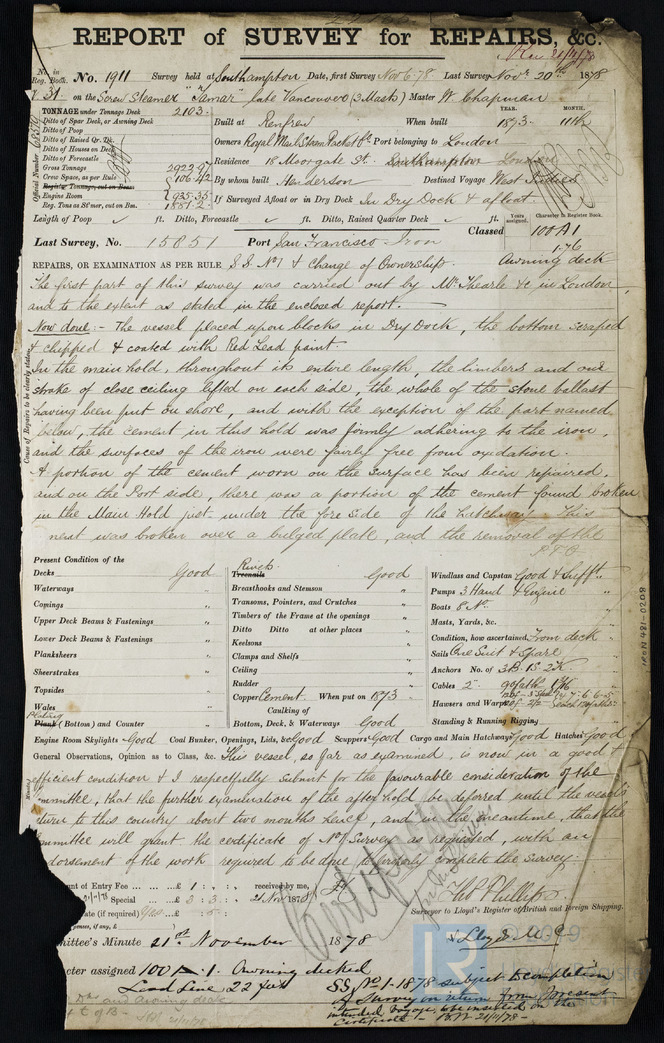 REPORT of SURVEY for REPAIRS, &c.
No. in Reg. Book. No. 1911 Survey held at Southampton Date, first Survey Nov 6-78 Last Survey Novr 20th 1878
on the Screw Steamer "Tamar" late Vancouver (3 Masts) Master W. Chapman
TONNAGE under Tonnage Deck 2103
Ditto of Spar Deck, or Awning Deck
Ditto of Poop
Ditto of Raised Qr. Dk.
Ditto of Houses on Deck
Ditto of Forecastle
Gross Tonnage
Crew Space, as per Rule
Register Tonnage, cut on Beam
Engine Room
Reg. Tons as St'mer, cut on Bm.
Official Number
Built at Renfrew When built YEAR. 1873. MONTH. 11th
Owners Royal Mail Steam Packet Co. Port belonging to London
Residence 18 Moorgate St. Southampton London
By whom built Henderson Destined Voyage West Indies
If Surveyed Afloat or in Dry Dock In Dry Dock & afloat.
Length of Poop ft. Ditto, Forecastle ft. Ditto, Raised Quarter Deck ft.
Years assigned. Character in Register Book.
Last Survey, No. 15851 Port San Francisco Iron Classed 100 A1
1.76
Awning deck
REPAIRS, OR EXAMINATION AS PER RULE S.S. No 1 & Change of Ownership.
The first part of this survey was carried out by Mr. Thearle &c in London,
and to the extent as stated in the enclosed report.
Now done:- The vessel placed upon blocks in Dry Dock, the bottom scraped
& chipped & coated with Red Lead paint.
In the main hold, throughout its entire length, the limbers and one
strake of close ceiling lifted on each side, the whole of the stone ballast
having been put on shore, and with the exception of the part named
below, the cement in this hold was firmly adhering to the iron,
and the surfaces of the iron were fairly free from oxidation.
A portion of the cement worn on the surface has been repaired,
and on the Port side, there was a portion of the cement found broken
in the Main Hold just under the fore side of the hatchway. This
ment was broken over a bulged plate, and the removal of the
P.T.O
Cause of Repairs to be clearly stated
Present Condition of the
Decks Good
Waterways "
Comings "
Upper Deck Beams & Fastenings "
Lower Deck Beams & Fastenings "
Planksheers "
Sheerstrakes "
Topsides "
Wales "
Plating
Plank (Bottom) and Counter "
Rivets
Treenails Good
Breasthooks and Stemson "
Transoms, Pointers, and Crutches "
Timbers of the Frame at the openings "
Ditto Ditto at other places "
Keelsons "
Clamps and Shelfs "
Ceiling "
Rudder "
Copper Cement. When put on 1873
Caulking of
Bottom, Deck, & Waterways Good
Windlass and Capstan Good & Sufft.
Pumps 3 Hand & Engine
Boats 8 No.
Masts, Yards, &c.
Condition, how ascertained From deck
Sails One Suit & Spare
Anchors No. of 3B. 1S. 2K.
Cables 2
Hawsers and Warps
Standing & Running Rigging "
Engine Room Skylights Good Coal Bunker, Openings, Lids, &c Good Scuppers Good Cargo and Main Hatchways Good Hatches Good
General Observations, Opinion as to Class, &c. This vessel, so far as examined, is now in a good &
efficient condition & I respectfully submit for the favourable consideration of the
mmittee, that the further examination of the after hold be deferred until the vessel's
turn to this country about two months hence, and in the meantime, that the
mmittee will grant the certificate of No 1 Survey as requested, with an
dorsement of the work required to be done to properly complete the Survey.
nt of Entry Fee £ 1 : : received by me,
Special £ 3 : 3 : 21 Nov 1878
ate (if required)
Thos Phillips
Surveyor to Lloyd's Register of British and Foreign Shipping.
ittee's Minute 21st November 1878
cter assigned 100 A. 1. Awning decked
Load Line, 22 feet
SS. No 1-1878 subject to completion
of Survey on return from present
intended voyage, to be inserted on the
Certificate - 21/11/78-
and Awning deck
IRON 481-0208
LR